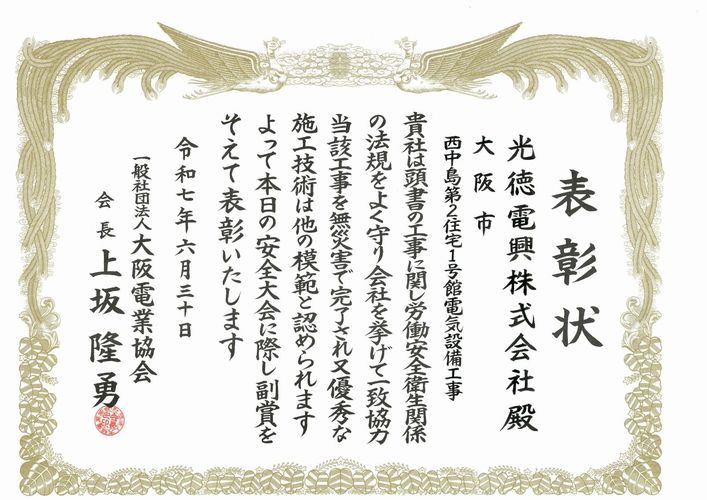 表彰状
光徳電興株式会社殿
大阪市
西中島第2住宅1号館電気設備工事
貴社は頭書の工事に関し労働安全衛生関係
の法規をよく守り会社を挙げて一致協力
当該工事を無災害で完了され又優秀な
施工技術は他の模範と認められます
よって本日の安全大会に際し副賞を
そえて表彰いたします
令和七年六月三十日
一般社団法人大阪電業協会
会長上坂隆勇